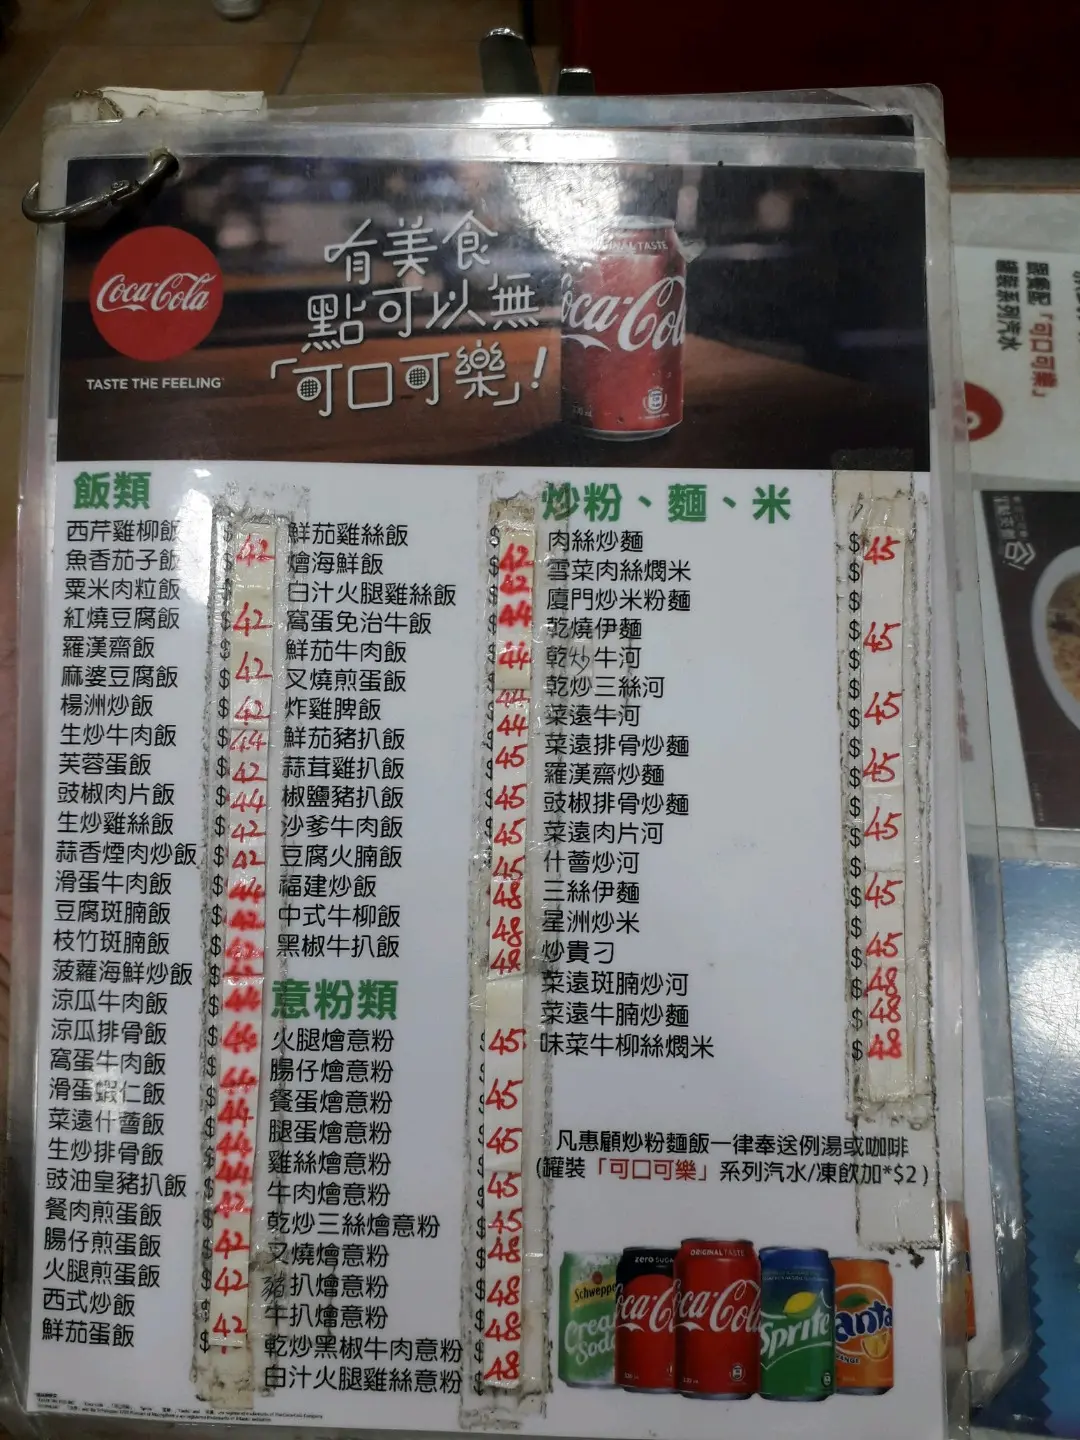 Coca-Cola
TASTE THE FEELING
有美食
點可以無
「可口可樂」!
ORIGINAL TASTE
飯類
西芹雞柳飯 $
魚香茄子飯 $ 42
粟米肉粒飯 $
紅燒豆腐飯 $ 42
羅漢齋飯 $
麻婆豆腐飯 $ 42
楊洲炒飯 $ 42
生炒牛肉飯 $ 44
芙蓉蛋飯 $ 42
豉椒肉片飯 $ 44
生炒雞絲飯 $ 42
蒜香煙肉炒飯 $ 42
滑蛋牛肉飯 $ 44
豆腐斑腩飯 $ 42
枝竹斑腩飯 $
菠蘿海鮮炒飯 $
涼瓜牛肉飯 $ 44
涼瓜排骨飯 $ 44
窩蛋牛肉飯 $ 44
滑蛋蝦仁飯 $ 44
菜遠什薈飯 $ 44
生炒排骨飯 $ 44
豉油皇豬扒飯 $ 42
餐肉煎蛋飯 $ 42
腸仔煎蛋飯 $
火腿煎蛋飯 $ 42
西式炒飯 $ 42
鮮茄蛋飯 $
鮮茄雞絲飯 $ 42
燴海鮮飯 $ 42
白汁火腿雞絲飯 $ 44
窩蛋免治牛飯 $ 44
鮮茄牛肉飯 $
叉燒煎蛋飯 $ 44
炸雞脾飯 $ 44
鮮茄豬扒飯 $ 45
蒜茸雞扒飯 $
椒鹽豬扒飯 $ 45
沙爹牛肉飯 $ 45
豆腐火腩飯 $ 45
福建炒飯 $ 48
中式牛柳飯 $ 48
黑椒牛扒飯 $ 48
意粉類
火腿燴意粉 $ 45
腸仔燴意粉 $
餐蛋燴意粉 $ 45
腿蛋燴意粉 $ 45
雞絲燴意粉 $
牛肉燴意粉 $ 45
乾炒三絲燴意粉 $ 45
叉燒燴意粉 $ 48
豬扒燴意粉 $ 48
牛扒燴意粉 $ 48
乾炒黑椒牛肉意粉 $ 48
白汁火腿雞絲意粉 $
炒粉、麵、米
肉絲炒麵 $ 45
雪菜肉絲燜米 $
廈門炒米粉麵 $
乾燒伊麵 $ 45
乾炒牛河 $
乾炒三絲河 $
菜遠牛河 $ 45
菜遠排骨炒麵 $
羅漢齋炒麵 $ 45
豉椒排骨炒麵 $
菜遠肉片河 $ 45
什薈炒河 $
三絲伊麵 $ 45
星洲炒米 $
炒貴刁 $ 45
菜遠斑腩炒河 $ 48
菜遠牛腩炒麵 $ 48
味菜牛柳絲燜米 $ 48
凡惠顧炒粉麵飯一律奉送例湯或咖啡
(罐裝「可口可樂」系列汽水/凍飲加*$2)
Schweppes
Cream Soda
ZERO SUGAR
Coca-Cola
ORIGINAL TASTE
Coca-Cola
Sprite
Fanta
ORANGE
蛋餐配「可口可樂」
罐裝系列汽水